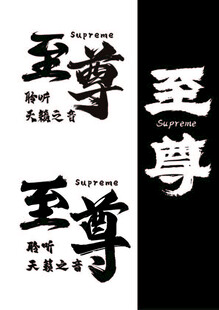 Supreme
至尊
聆听
天籁之音
Supreme
至尊
聆听
天籁之音
至
Supreme
尊